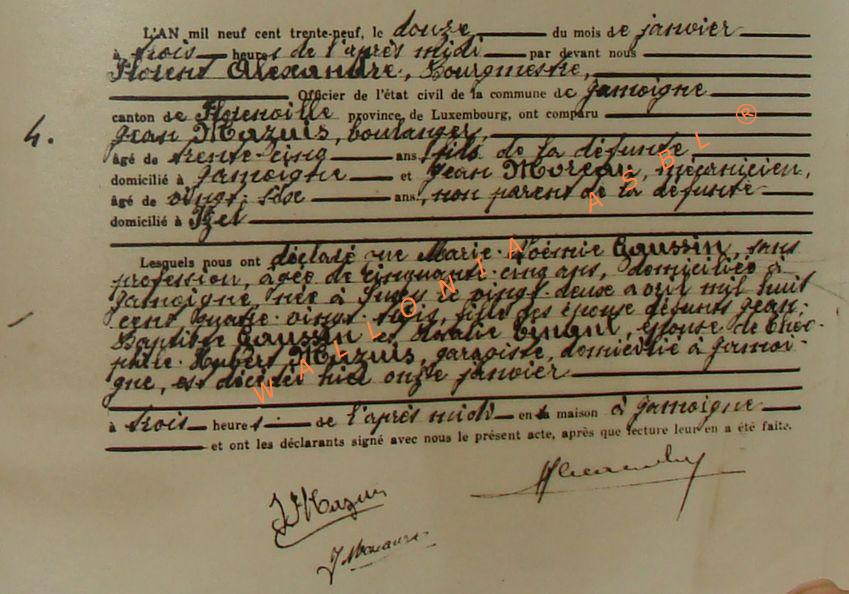 L'AN mil neuf cent trente-neuf, le douze du mois de janvier
à trois heures de l'après midi par devant nous
Florent Alexandre, Bourgmestre,
Officier de l'état civil de la commune de Jamoigne
canton de Florenville province de Luxembourg, ont comparu
4.
Jean Mazuis, boulanger,
âgé de trente-cinq ans, fils de la défunte,
domicilié à Jamoigne et Jean Moreaux, mécanicien,
âgé de vingt-six ans, non parent de la défunte
domicilié à Izel
Lesquels nous ont déclaré que Marie-Noémie Goussin, sans
profession, âgée de cinquante-cinq ans, domiciliée à
Jamoigne, née à le vingt-deux avril mil huit
cent quatre-vingt-trois, fille des époux défunts Jean-
Baptiste Goussin et , épouse de Théo-
phile-Hubert Mazuis, garagiste, domicilié à Jamoi-
gne, est décédée hier onze janvier
à trois heures de l'après midi en sa maison à Jamoigne
et ont les déclarants signé avec nous le présent acte, après que lecture leur en a été faite.
JMazuis
WALLONIA ASBL ®